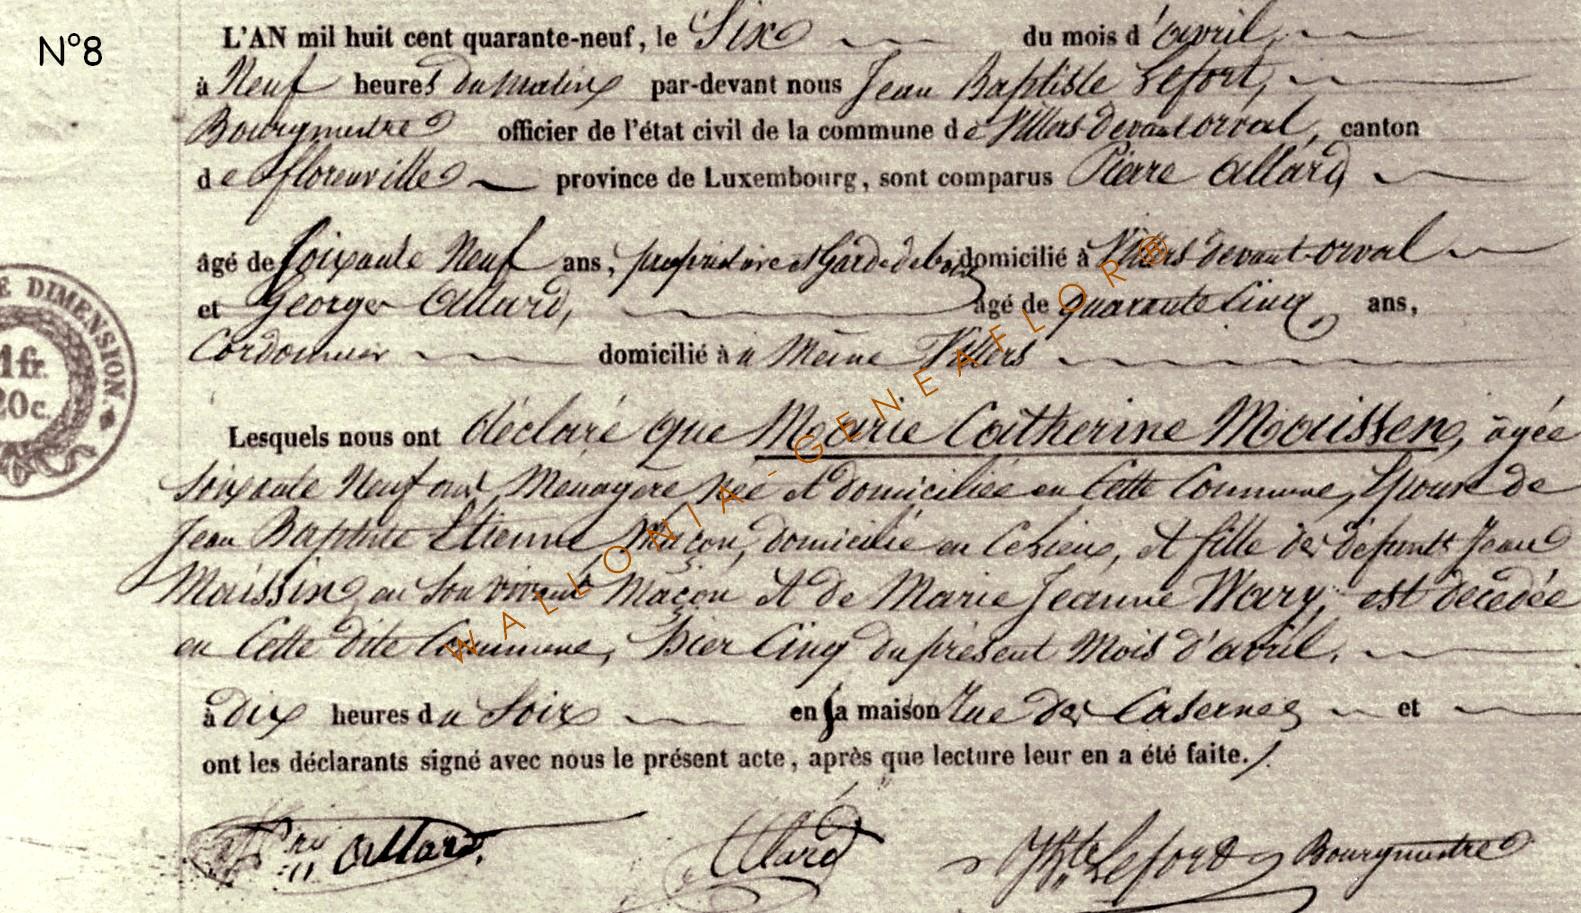 N°8
L'AN mil huit cent quarante-neuf, le Six du mois d'avril
à Neuf heures du matin par-devant nous Jean Baptiste Lefort,
Bourgmestre officier de l'état civil de la commune de Villers devant orval, canton
de florenville province de Luxembourg, sont comparus Pierre Allard,
âgé de soixante Neuf ans, propriétaire et Garde de bois domicilié à Villers devant-orval
et Georges Allard, âgé de quarante Cinq ans,
Cordonnier domicilié à u Même Villers
Lesquels nous ont déclaré que Marie Catherine Maissen, âgée
soixante Neuf ans, Menagère née et domiciliée en Cette Commune, Epouse de
Jean Baptiste Etienne Maçon, domicilié en Ce lieu, et fille des défunts Jean
Maissin en son vivant Maçon et de Marie Jeanne Wary, est décédée
en Cette dite Commune, hier Cinq du présent Mois d'avril.
à dix heures du Soir en sa maison Rue des Casernes et
ont les déclarants signé avec nous le présent acte, après que lecture leur en a été faite.
Allard Allard Lefort Bourgmestre
E DIMENSION
1 fr.
20c.
WALLONIA-GENEAFLOR®